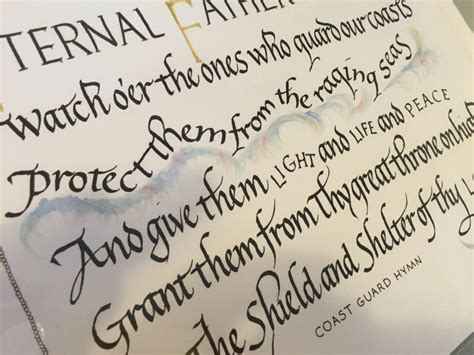 TERNAL FATHER
Watch o'er the ones who guard our coasts
Protect them from the raging seas
And give them LIGHT and LIFE and PEACE
Grant them from Thy great throne on
the Shield and Shelter of thy
COAST GUARD HYMN